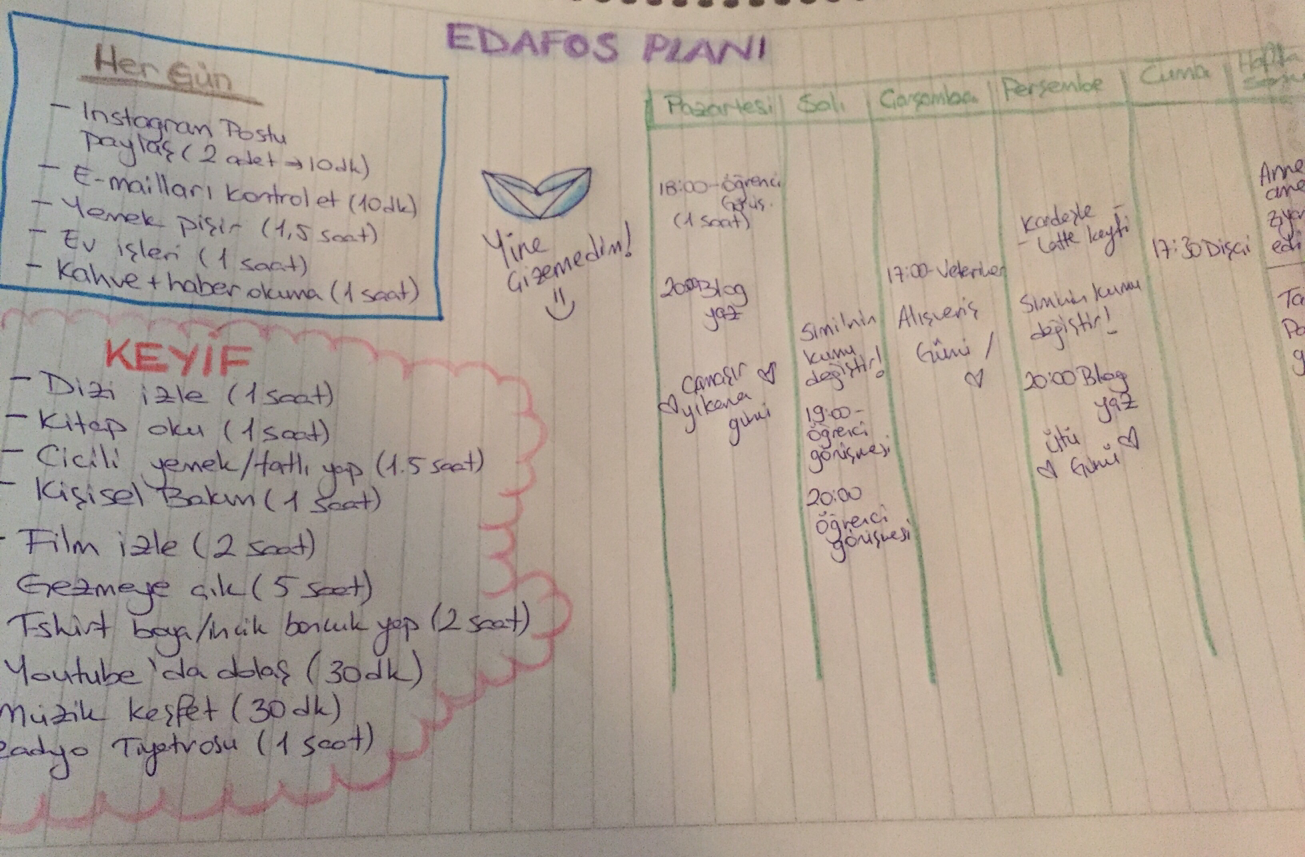 EDAFOS PLANI
Her Gün
- Instagran Postu
paylaş (2 adet → 10dk)
- E-mailları kontrol et (10dk)
- Yemek pişir (1,5 saat)
- Ev işleri (1 saat)
- Kahve + haber okuma (1 saat)
Yine
Çizemedim!
KEYİF
- Dizi izle (1 saat)
- Kitap oku (1 saat)
- Cicili yemek/tatlı yap (1.5 saat)
- Kişisel Bakım (1 saat)
- Film izle (2 saat)
Gezmeye çık (5 saat)
T-shirt boya/incik boncuk yap (2 saat)
Youtube'da dolaş (30dk)
Müzik keşfet (30dk)
Radyo Tiyatrosu (1 saat)
Pazartesi
18:00-Öğrenci
Görüş.
(1 saat)
20:00 Blog
yaz
Çamaşır
yıkama
günü
Salı
Simli'nin
kumu
değiştir!
19:00-
Öğrenci
görüşmesi
20:00
Öğrenci
görüşmesi
Çarşamba
17:00-Veteriner
Alışveriş
Günü!
Perşembe
Kardeşle -
- Latte keyfi
Simlinin kumu
değiştir!
20:00 Blog
yaz
Ütü
Günü
Cuma
17:30 Dişçi
Hafta
Sonu
Anne
ziyar
edi